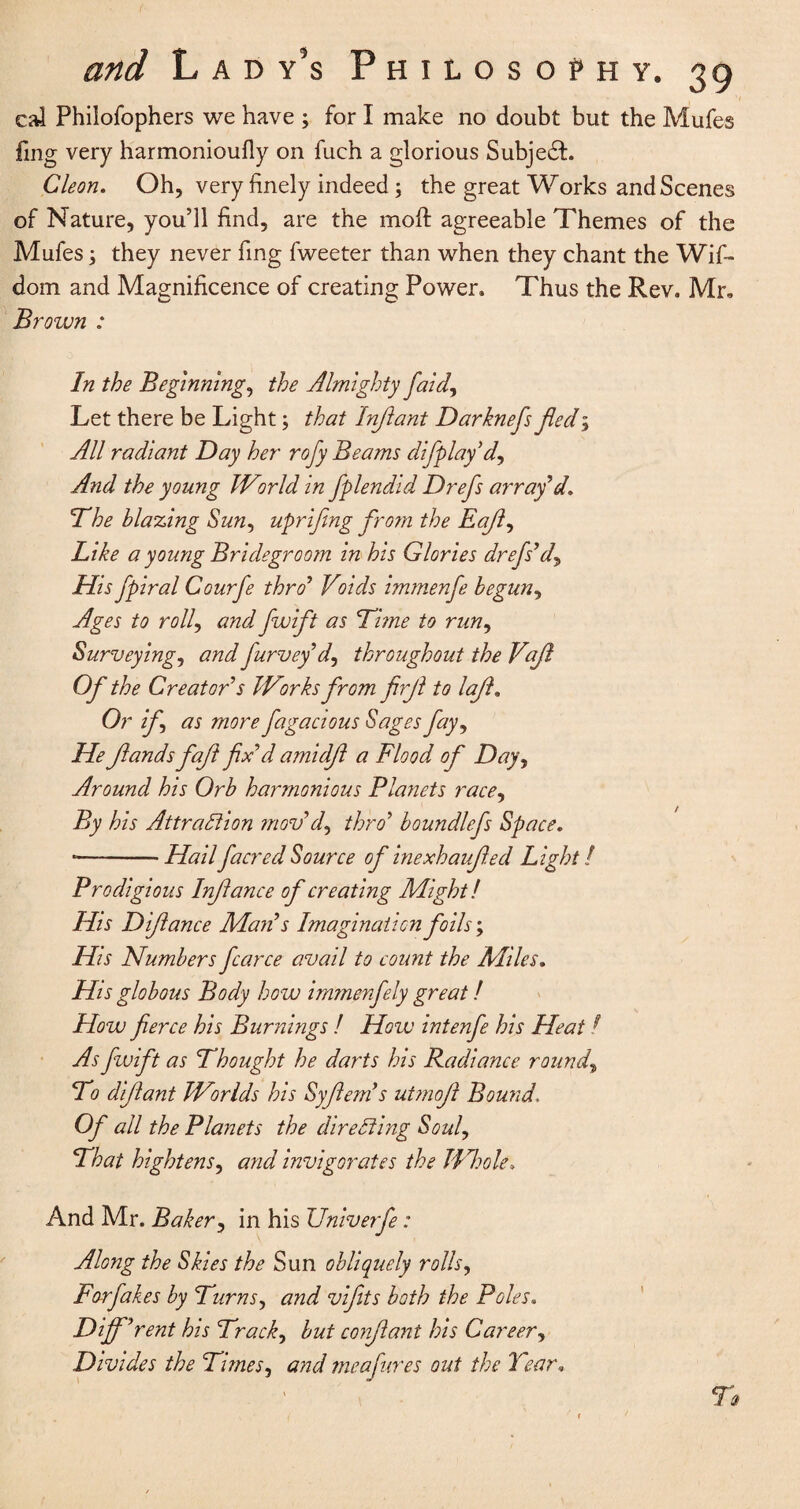 and LADY's PHILOSOPHY. 39
cal Philoſophers we have ; for I make no doubt but the Muſes
ſing very harmoniouſly on ſuch a glorious Subject.
Cleon. Oh, very finely indeed ; the great Works and Scenes
of Nature, you'll find, are the moſt agreeable Themes of the
Muſes ; they never ſing ſweeter than when they chant the Wiſ-
dom and Magnificence of creating Power. Thus the Rev. Mr.
Brown :
In the Beginning, the Almighty ſaid,
Let there be Light ; that Inſtant Darkneſs fled ;
All radiant Day her roſy Beams diſplay'd,
And the young World in ſplendid Dreſs array'd.
The blazing Sun, upriſing from the Eaſt,
Like a young Bridegroom in his Glories dreſs'd,
His ſpiral Courſe thro' Voids immenſe begun,
Ages to roll, and ſwift as Time to run,
Surveying, and ſurvey'd, throughout the Vaſt
Of the Creator's Works from firſt to laſt.
Or if, as more ſagacious Sages ſay,
He ſtands faſt fix'd amidſt a Flood of Day,
Around his Orb harmonious Planets race,
By his Attraction mov'd, thro' boundleſs Space.
—— Hail ſacred Source of inexhauſted Light !
Prodigious Inſtance of creating Might !
His Diſtance Man's Imagination foils ;
His Numbers ſcarce avail to count the Miles.
His globous Body how immenſely great !
How fierce his Burnings ! How intenſe his Heat !
As ſwift as Thought he darts his Radiance round,
To diſtant Worlds his Syſtem's utmoſt Bound.
Of all the Planets the directing Soul,
That hightens, and invigorates the Whole.
And Mr. Baker, in his Univerſe :
Along the Skies the Sun obliquely rolls,
Forſakes by Turns, and viſits both the Poles.
Diff'rent his Track, but conſtant his Career,
Divides the Times, and meaſures out the Year.
To